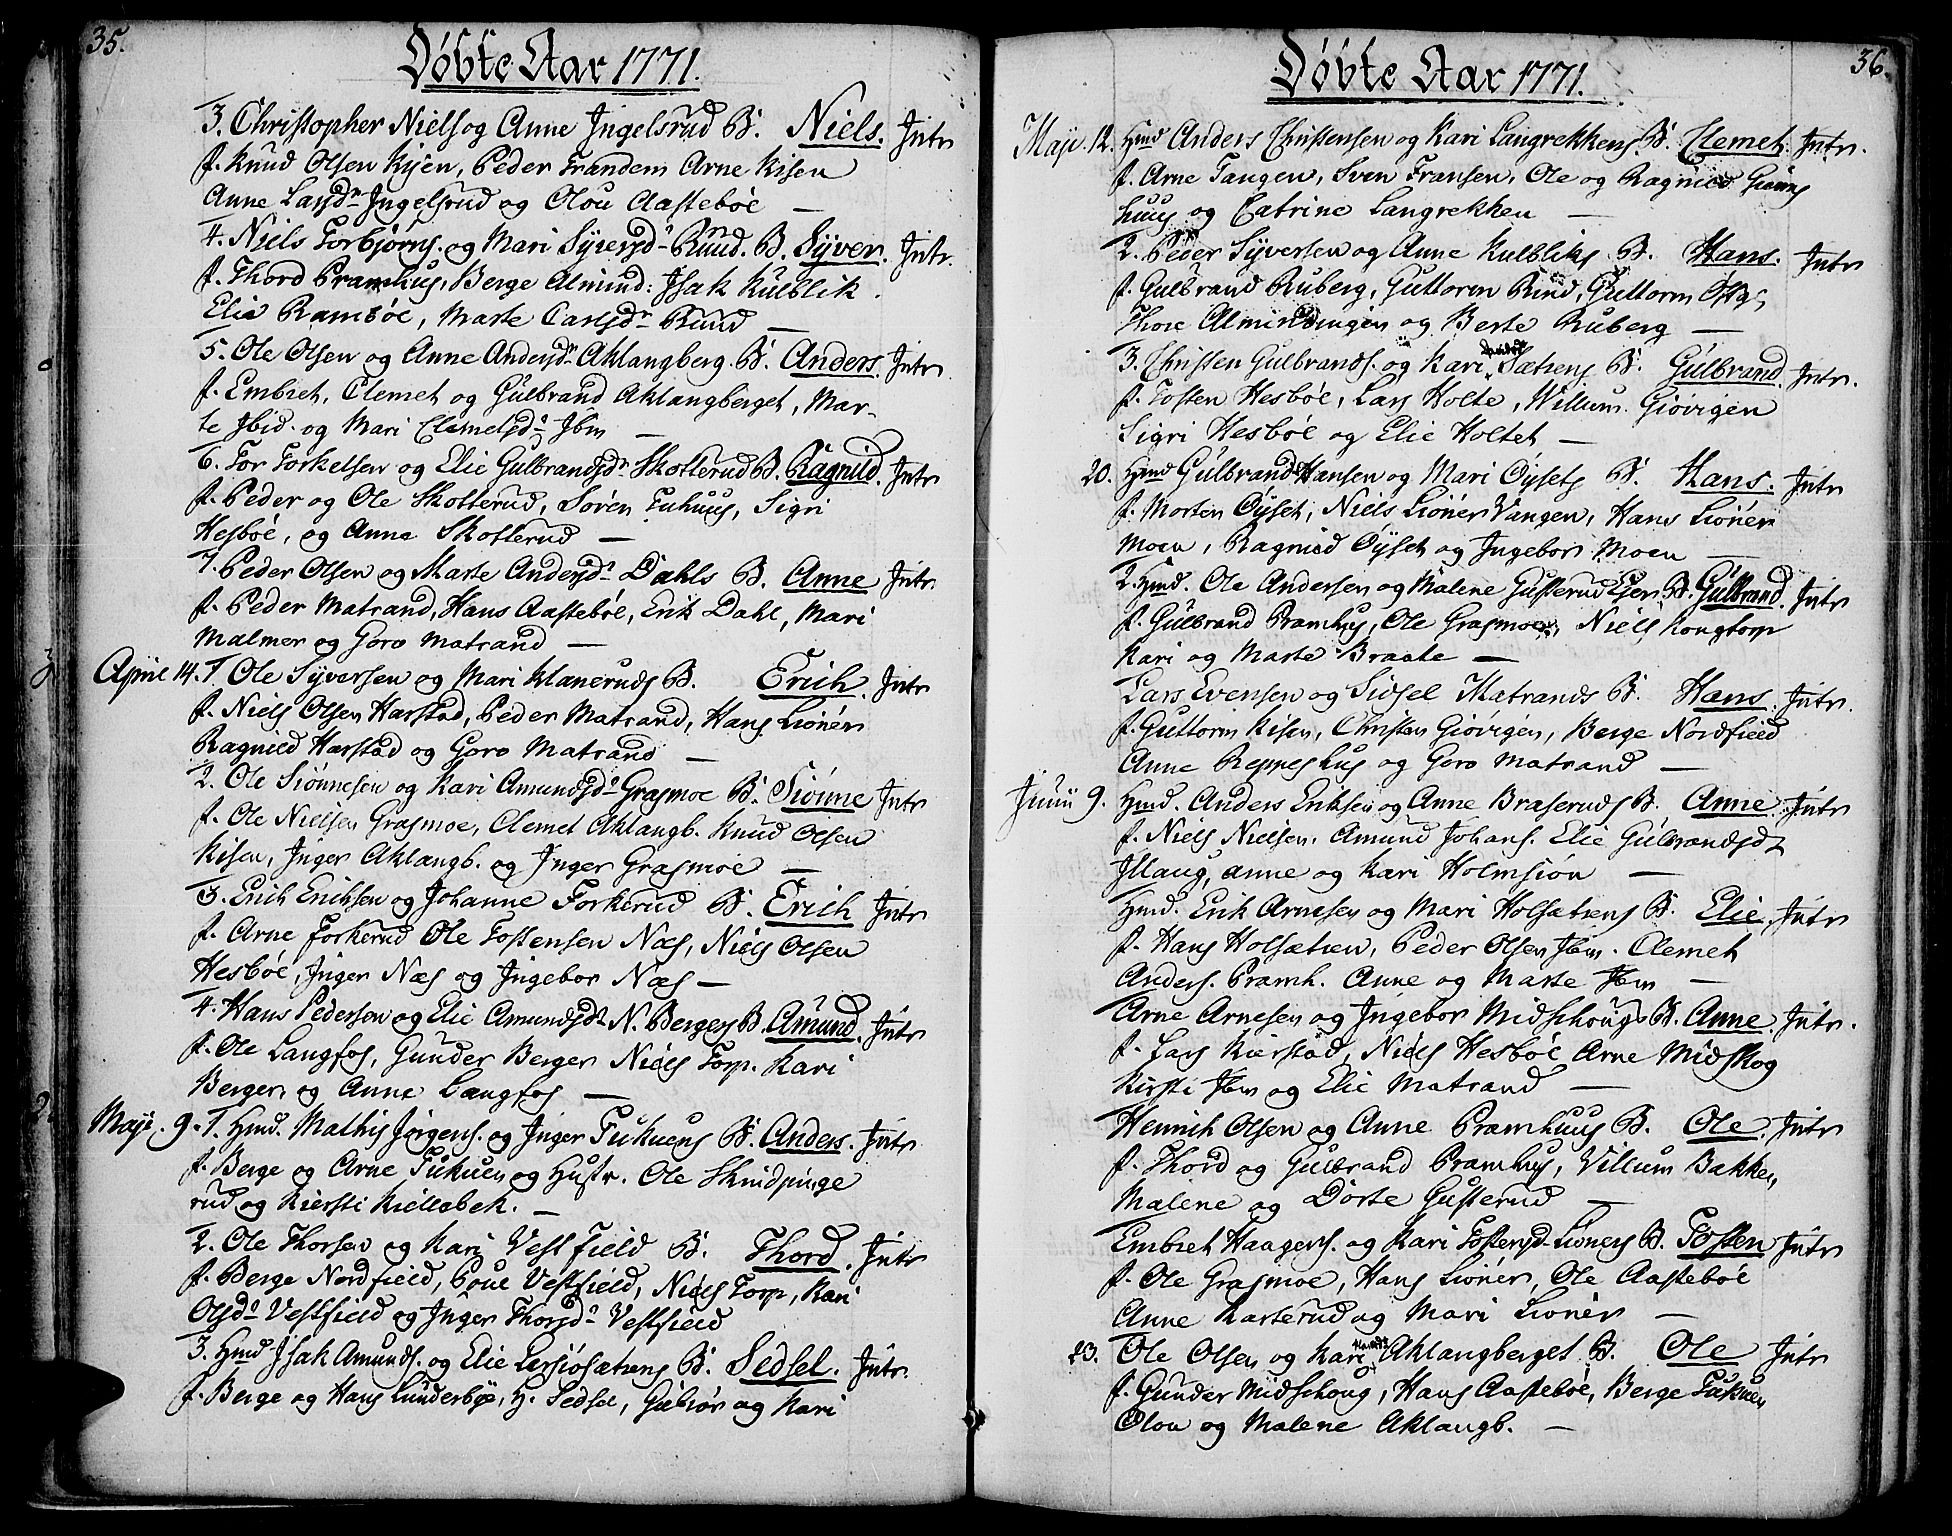 35.
Döbte Aar 1771.
3. Christopher Niels og Anne Ingelsrud B. Niels. Intr
f. Knud Olsen Kisen, Peder Trandem Arne Kisen
Anne Larsdr Ingelsrud og Olou Aasteböe —
4. Niels Torbjörns. og Mari Syversdr Rund. B. Syver. Intr.
f. Thord Pramhus, Berge Almind: Isak Kulblik.
Elie Ramböe, Marte Carlsdr Rund —
5. Ole Olsen og Anne Andersdr Aklangberg. B. Anders. Intr
f. Embret, Clemet og Gulbrand Aklangberget, Mar-
te Ibid. og Mari Clemetsdr Ibm —
6. Tor Torkelsen og Elie Gulbrandsdr Skotterud B. Ragnild. Intr
f. Peder og Ole Skotterud, Sören Tukuus, Sigri
Hesböe, og Anne Skotterud —
7. Peder Olsen og Marte Andersdr Dahls B. Anne Intr.
f. Peder Matrand, Hans Aasteböe, Erik Dahl, Mari
Malmer og Goro Matrand —
April 14. 1 Ole Syversen og Mari Klaneruds B. Erich. Intr
f. Niels Olsen Harstad, Peder Matrand, Hans Liöner
Ragnild Harstad og Goro Matrand —
2. Ole Siönnesen og Kari Amundsdr Grasmoe B. Siönne Intr
f. Ole Nielsen Grasmoe, Clemet Aklangb. Knud Olsen
Kisen, Inger Aklangb. og Inger Grasmoe —
3. Erich Eriksen og Johanne Forkerud B. Erich Intr
f. Arne Forkerud Ole Tostensen Næs, Niels Olsen
Hesböe, Inger Næs og Ingebor Næs —
4. Hans Pedersen og Elie Amundsdr N. Berger B. Amund. Intr
f. Ole Langfos, Gunder Berger Niels Torp. Kari
Berger, og Anne Langfos —
Maji. 9. 1. Hmd. Mathis Jörgens. og Inger Tukuens B. Anders. Intr
f. Berge og Arne Tukuen og Hustr. Ole Skindpinge
rud og Kiersti Kiellebek. —
2. Ole Thorsen og Kari Vestfield B. Thord. Intr
f. Berge Nordfield, Poul Vestfield, Niels Torp, Kari
Olsdr Vestfield og Inger Thorsdr Vestfield
3. Hmd Isak Amunds. og Elie Lersiösætrens B. Sedsel. Intr.
f. Berge og Hans Lunderbye, H. Sedsel, Gubiör og Kari
36.
Döbte Aar 1771.
Maji. 12. Hmd Anders Christensen og Kari Langrekkens. B. Clemet. Intr.
f. Arne Tangen, Sven Fransen, Ole og Ragnild
huus og Catrine Langrekken —
2. Peder Syversen og Anne Kulbliks B. Hans. Intr
f. Gulbrand Ruberg, Guttorm Rund, Guttorm
Thore Almindingen og Berte Ruberg —
3. Christen Gulbrands. og Kari Sætrens B. Gulbrand. Intr.
f. Tosten Hesböe, Lars Holte, Willum Giövigen
Sigri Hesböe og Elie Holtet —
20. Hmd Gulbrand Hansen og Mari Öysets B. Hans. Intr
f. Morten Öyset, Niels Liöner Vangen, Hans Liöner
Moen, Ragnild Öyset og Ingebor Moen —
2. Hmd. Ole Andersen og Malene Gusterud Eyer B. Gulbrand. Intr
f. Gulbrand Pramhus, Ole Grasmoe, Niels Kongtorp
Kari og Marte Braate —
Lars Evensen og Sidsel Matrands B. Hans. Intr.
f. Guttorm Kisen, Christen Giövigen, Berge Nordfield
Anne Reppeshus og Goro Matrand —
Junii 9. Hmd. Anders Eriksen og Anne Braseruds B. Anne. Intr
f. Niels Nielsen. Amund Johans. Elie Gulbrandsdr
Illaug, Anne og Kari Holmsiön —
Hmd. Erik Arnesen og Mari Holsætrens B. Elie. Intr
f. Hans Holsætren, Peder Olsen Ibm. Clemet
Anders. Pramh. Anne og Marte Ibm —
Arne Arnesen og Ingebor Midschougs B. Anne. Intr.
f. Lars Kierstad, Niels Hesböe Arne Midskog
Kirsti Ibm og Elie Matrand —
Henrich Olsen og Anne Pramhuus B. Ole. Intr
f. Thord og Gulbrand Pramhus, Villum Bakken,
Malene og Dorte Gusterud —
Embret Haagens. og Kari Tostensd. Liöners B. Tosten Intr
f. Ole Grasmoe, Hans Liöner, Ole Aasteböe
Anne Karterud og Mari Liöner —
23. Ole Olsen og Kari Aklangberget B. Ole Intr
f. Gunder Midschoug, Hans Aasteböe, Berge Tukuen
Olou og Malene Aklangb. —